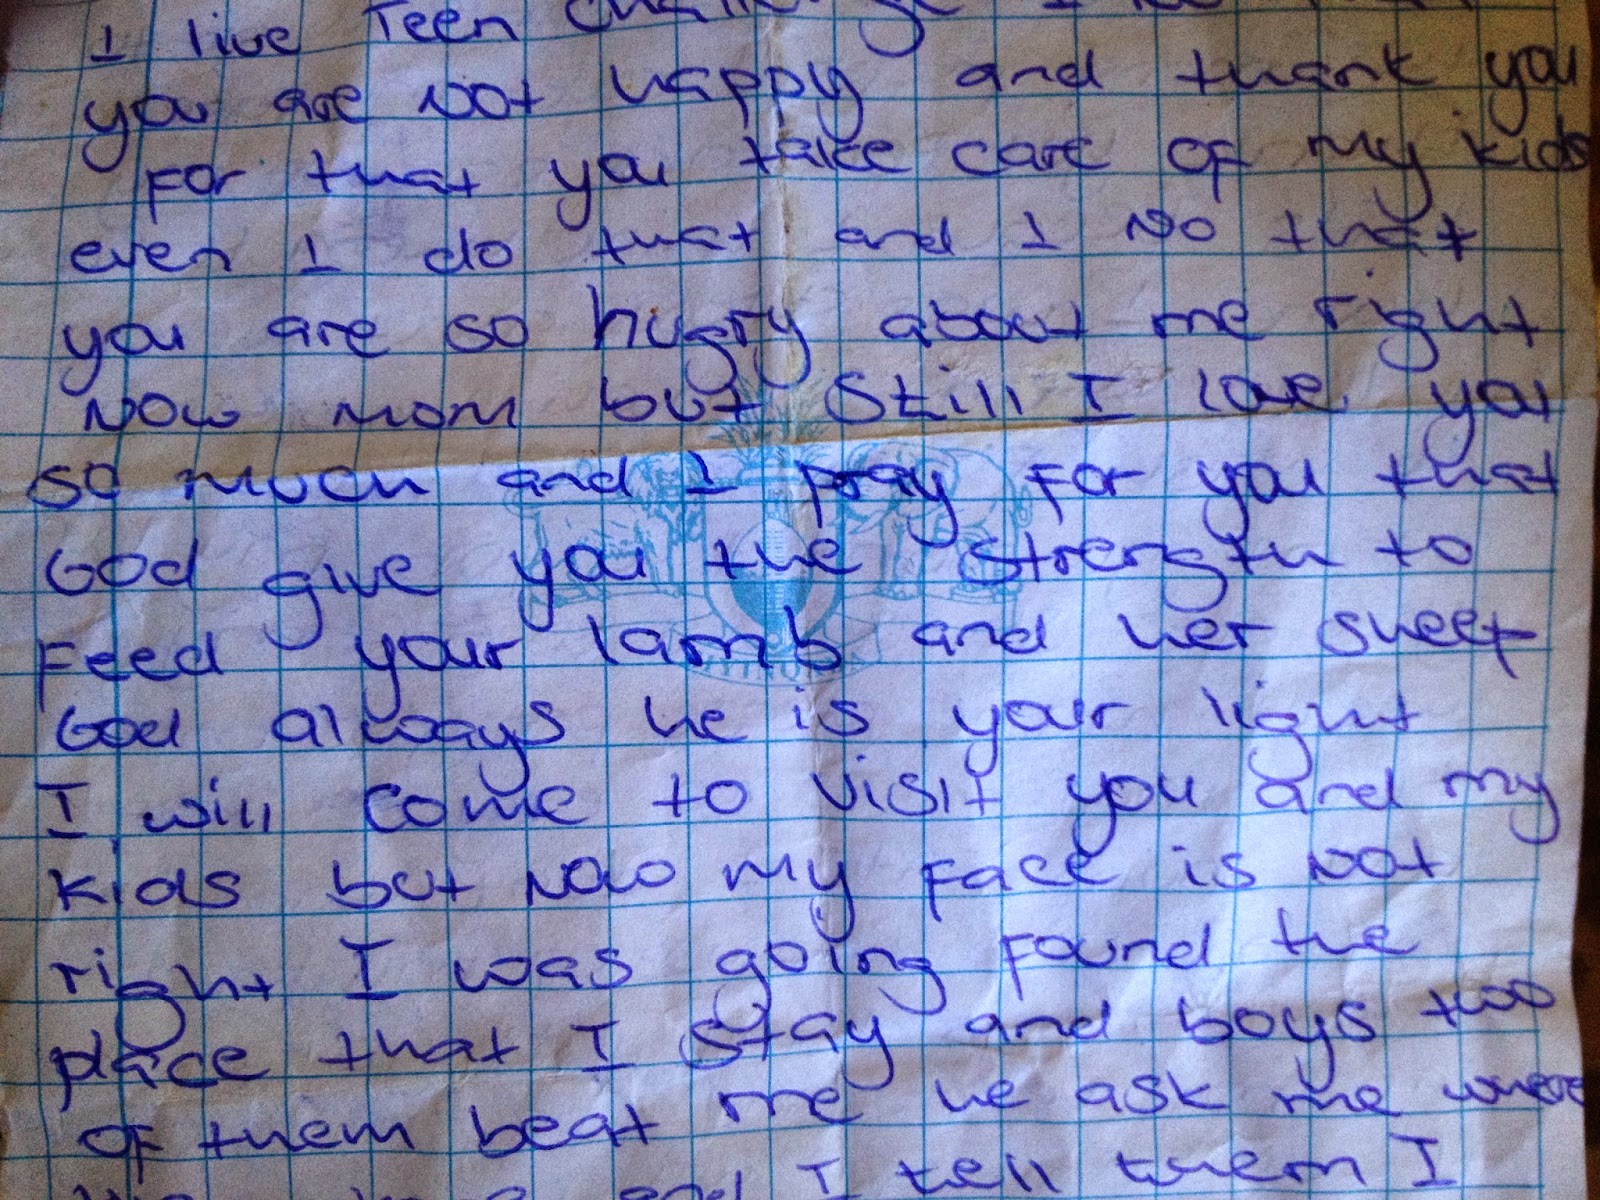 I live Teen
you are Not happy and thank you
For that you take care of my kids
even I do that and I No that
you are so hugry about me right
Now mom but still I love you
so much and I pray For you that
God give you the strength to
Feed your lamb and her sheep
God always he is your light
I will come to visit you and my
kids but Now my Face is Not
right I was going Found the
place that I stay and boys two
of them beat me he ask me where
and I tell them I